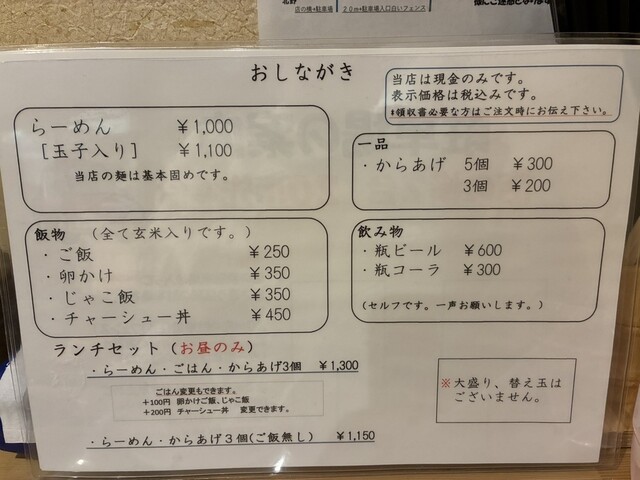 北野
店の横+駐車場
20m+駐車場入口白いフェンス
おしながき
当店は現金のみです。
表示価格は税込みです。
*領収書必要な方はご注文時にお伝え下さい。
らーめん ¥1,000
[玉子入り] ¥1,100
当店の麺は基本固めです。
一品
・からあげ 5個 ¥300
3個 ¥200
飯物 (全て玄米入りです。)
・ご飯 ¥250
・卵かけ ¥350
・じゃこ飯 ¥350
・チャーシュー丼 ¥450
飲み物
・瓶ビール ¥600
・瓶コーラ ¥300
(セルフです。一声お願いします。)
ランチセット (お昼のみ)
・らーめん・ごはん・からあげ3個 ¥1,300
ごはん変更もできます。
+100円 卵かけご飯、じゃこ飯
+200円 チャーシュー丼 変更できます。
・らーめん・からあげ3個(ご飯無し) ¥1,150
※大盛り、替え玉は
ございません。